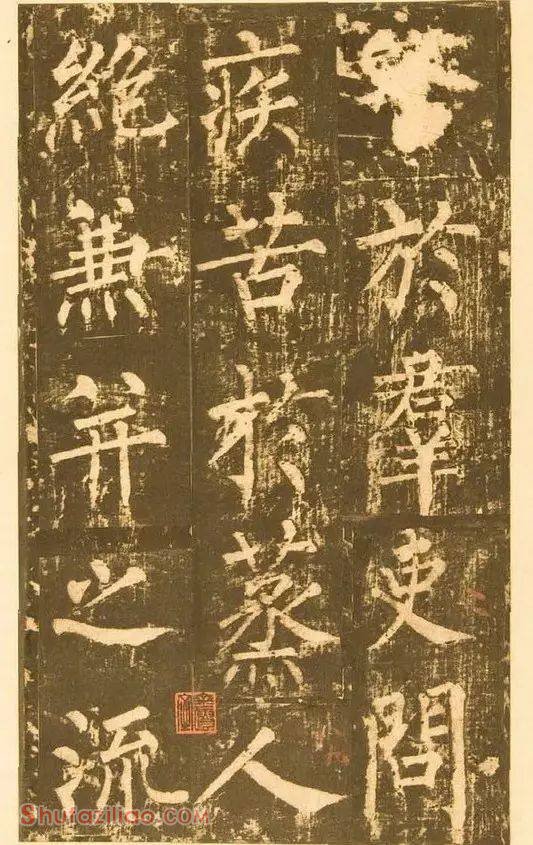 於羣吏問
疾苦於蒸人
絶兼并之流
Shufaziliao.com